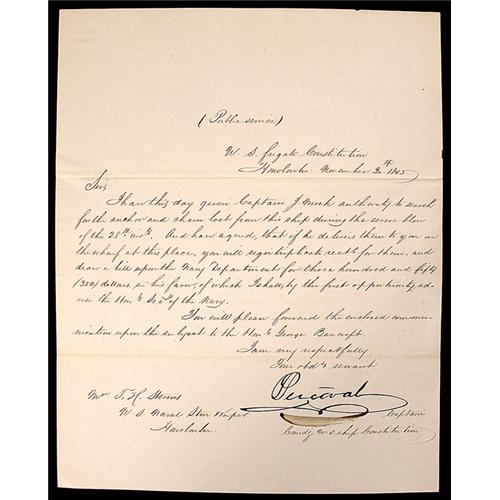 (Public service)
U. S. frigate Constitution
Honolulu November 1845
Sir,
I have this day given Captain J Meek authority to search
for the anchor and chain lost from this ship during the severe blow
of the 28th ulto. And have agreed, that if he delivers them to you on
the wharf at this place, you will sign triplicate recets for them, and
draw a bill upon the Navy Department for three hundred and fifty
/350/ dollars, in his favor, of which I shall, by the first opportunity, ad-
vise the Honbl. Secy of the Navy.
You will please forward the enclosed commu-
nication upon the subject to the Honbl George Bancroft.
I am very respectfully
Your obdt servant
Percival
Captain
Comdg U. S. ship Constitution
Mr
U. S. Naval Store keeper
Honolulu